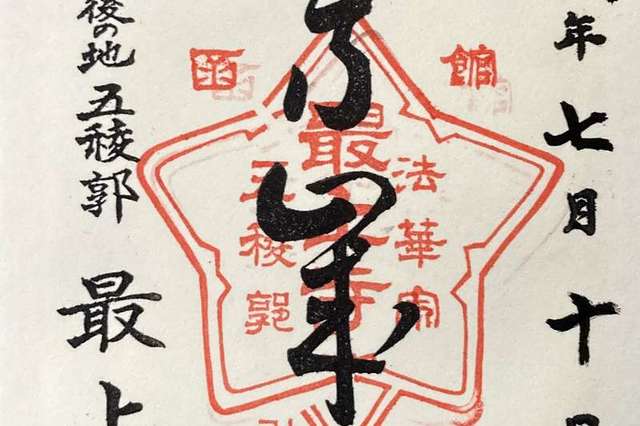 年七月十日
函館
法華宗
最上寺
五稜郭
後の地 五稜郭
最上